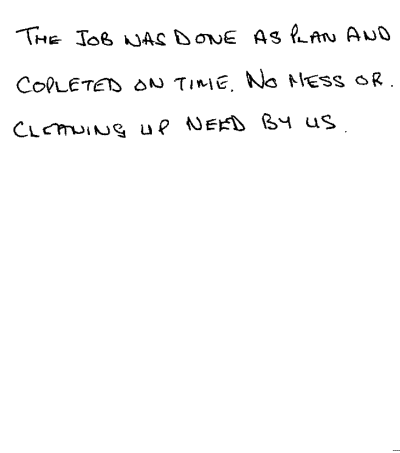 THE JOB WAS DONE AS PLAN AND
COPLETED ON TIME. NO MESS OR.
CLEANING UP NEED BY US.